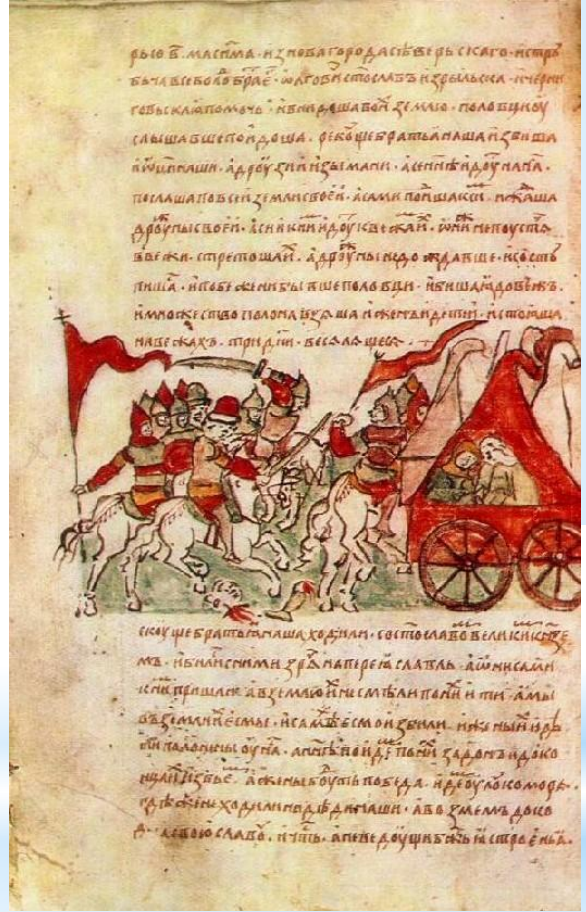 рью в҃. масима. из новагорода сѣверьскаго. и стрꙋ
бьча всеволо бра е. ѡлгови стославъ из рыльска. и черни
говьскаꙗ помочь. и внидоша во и землю. половци оу
слышавше поидоша. рекоуще братьꙗ наша избита
и ѿци наши. а дроузии изымани. а се н нѣ идоу на на.
послаша по всеи земли своеи. а сами поиша к си. и жаша
дроуины своеи. а си к ни идоу к вежа и. ѡни не поустѧ
в вежи. стретоша и. а дроуины не дождавше. и состоу
пиша. и побежени быша половци. и биша и до вежь.
и множество полона взѧша и жены и дети. и стоꙗша
на вежахъ. три дни. веселѧщесѧ.
скоуще братьꙗ наша ходили. со стославо великим кнзе
мъ. и билис с ними зрѧ на переꙗславль. а ѡни сами
к ни пришли. а в землю и не смѣли по ни ити. а мы
въ земли и есмы. и самѣ есмо избили. и жены и дѣ
ти полонены оу на. а н нѣ поиде по ни за донъ и до ко
нца и избье. аже ны боуть победа. иде оу лоукоморь.
где же не ходили ни дѣди наши. а возмемъ до ко
свою славоу. и чть. а не ведоущи бжь строеньꙗ.